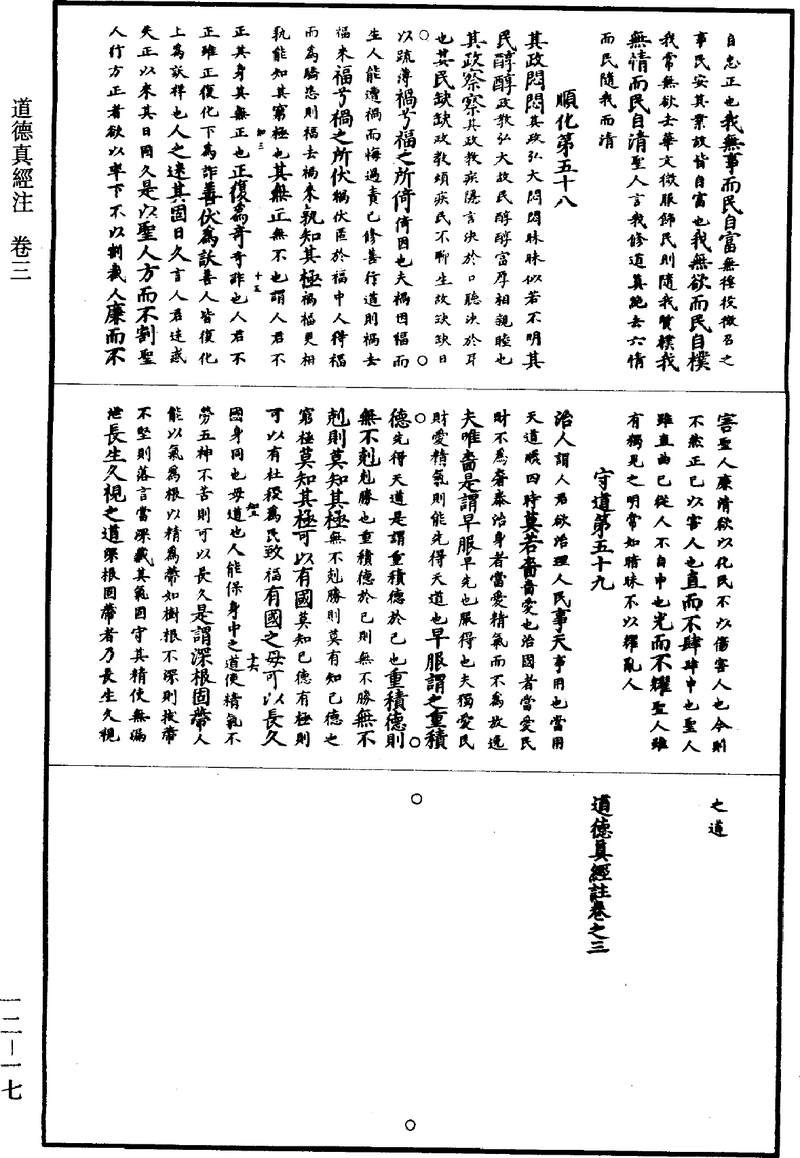 道德真經注　卷三
自忠正也我無事而民自富無徭役徵召之
事民安其業故皆自富也我無欲而民自樸
我常無欲去華文微服飾民則隨我質樸我
無情而民自清聖人言我修道真絕去六情
而民隨我而清
順化第五十八
其政悶悶其政弘大悶悶昧昧似若不明其
民醇醇政教弘大故民醇醇富厚相親睦也
其政察察其政教疾隱言決於口聽決於耳
也其民缺缺政教煩疾民不聊生故缺缺日
以疏薄禍兮福之所倚倚因也夫禍因福而
生人能遭禍而悔過責己修善行道則禍去
福來福兮禍之所伏禍伏匿於福中人得福
而為驕恣則福去禍來孰知其極禍福更相
孰能知其窮極也其無正無不也謂人君不
知三
十五
正其身其無正也正復為奇奇詐也人君不
正雖正復化下為詐善伏為訞善人皆復化
上為訞祥也人之迷其固日久言人君迷惑
失正以來其日固久是以聖人方而不割聖
人行方正者欲以率下不以割截人廉而不
害聖人廉清欲以化民不以傷害人也今則
不然正己以害人也直而不肆肆申也聖人
雖直曲己從人不自申也光而不耀聖人雖
有獨見之明常如暗昧不以耀亂人
守道第五十九
治人謂人君欲治理人民事天事用也當用
天道順四時莫若嗇嗇愛也治國者當愛民
財不為奢泰治身者當愛精氣而不為放逸
夫唯嗇是謂早服早先也服得也夫獨愛民
財愛精氣則能先得天道也早服謂之重積
德先得天道是謂重積德於己也重積德則
無不剋剋勝也重積德於己則無不勝無不
剋則莫知其極無不剋勝則莫有知己德之
窮極莫知其極可以有國莫知己德有極則
可以有社稷為民致福有國之母可以長久
知三
十六
國身同也母道也人能保身中之道使精氣不
勞五神不苦則可以長久是謂深根固蔕人
能以氣為根以精為蔕如樹根不深則拔蔕
不堅則落言當深藏其氣固守其精使無漏
泄長生久視之道深根固蔕者乃長生久視
之道
道德真經註卷之三
一二－一七